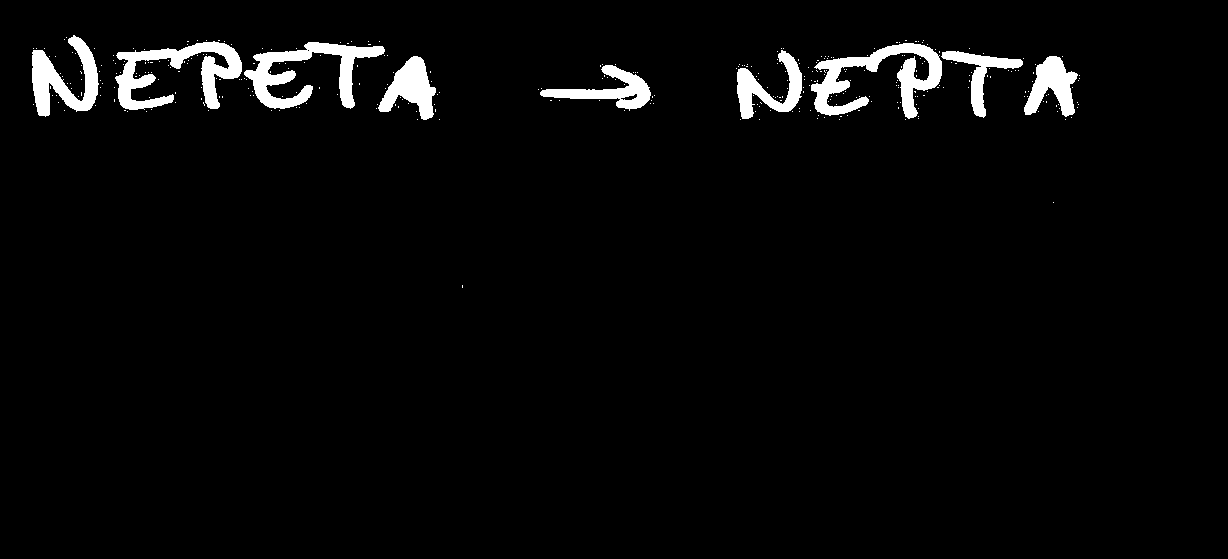 NEPETA → NEPTA